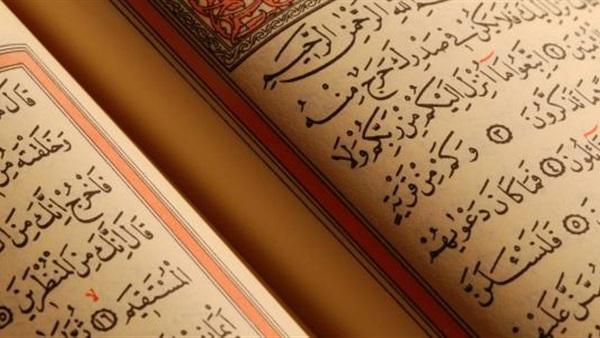 الله الرَّحْمٰنِ الرَّحِيمِ
اِلَيْكَ فَلَا يَكُنْ فِي صَدْرِكَ حَرَجٌ مِنْهُ
اِتَّبِعُوا مَا أُنْزِلَ اِلَيْكُمْ مِنْ رَبِّكُمْ وَلَا
مَا تَذَكَّرُونَ ٣ وَكَمْ مِنْ قَرْيَةٍ
٤ فَمَا كَانَ دَعْوٰيهُمْ
٥ فَلَنَسْئَلَنَّ
عَلَيْهِمْ
قَالَ مَا
وَخَلَقْتَهُ مِنْ
فَاخْرُجْ اِنَّكَ مِنَ
قَالَ اِنَّكَ مِنَ الْمُنْظَرِينَ
الْمُسْتَقِيمَ ١٦ ثُمَّ